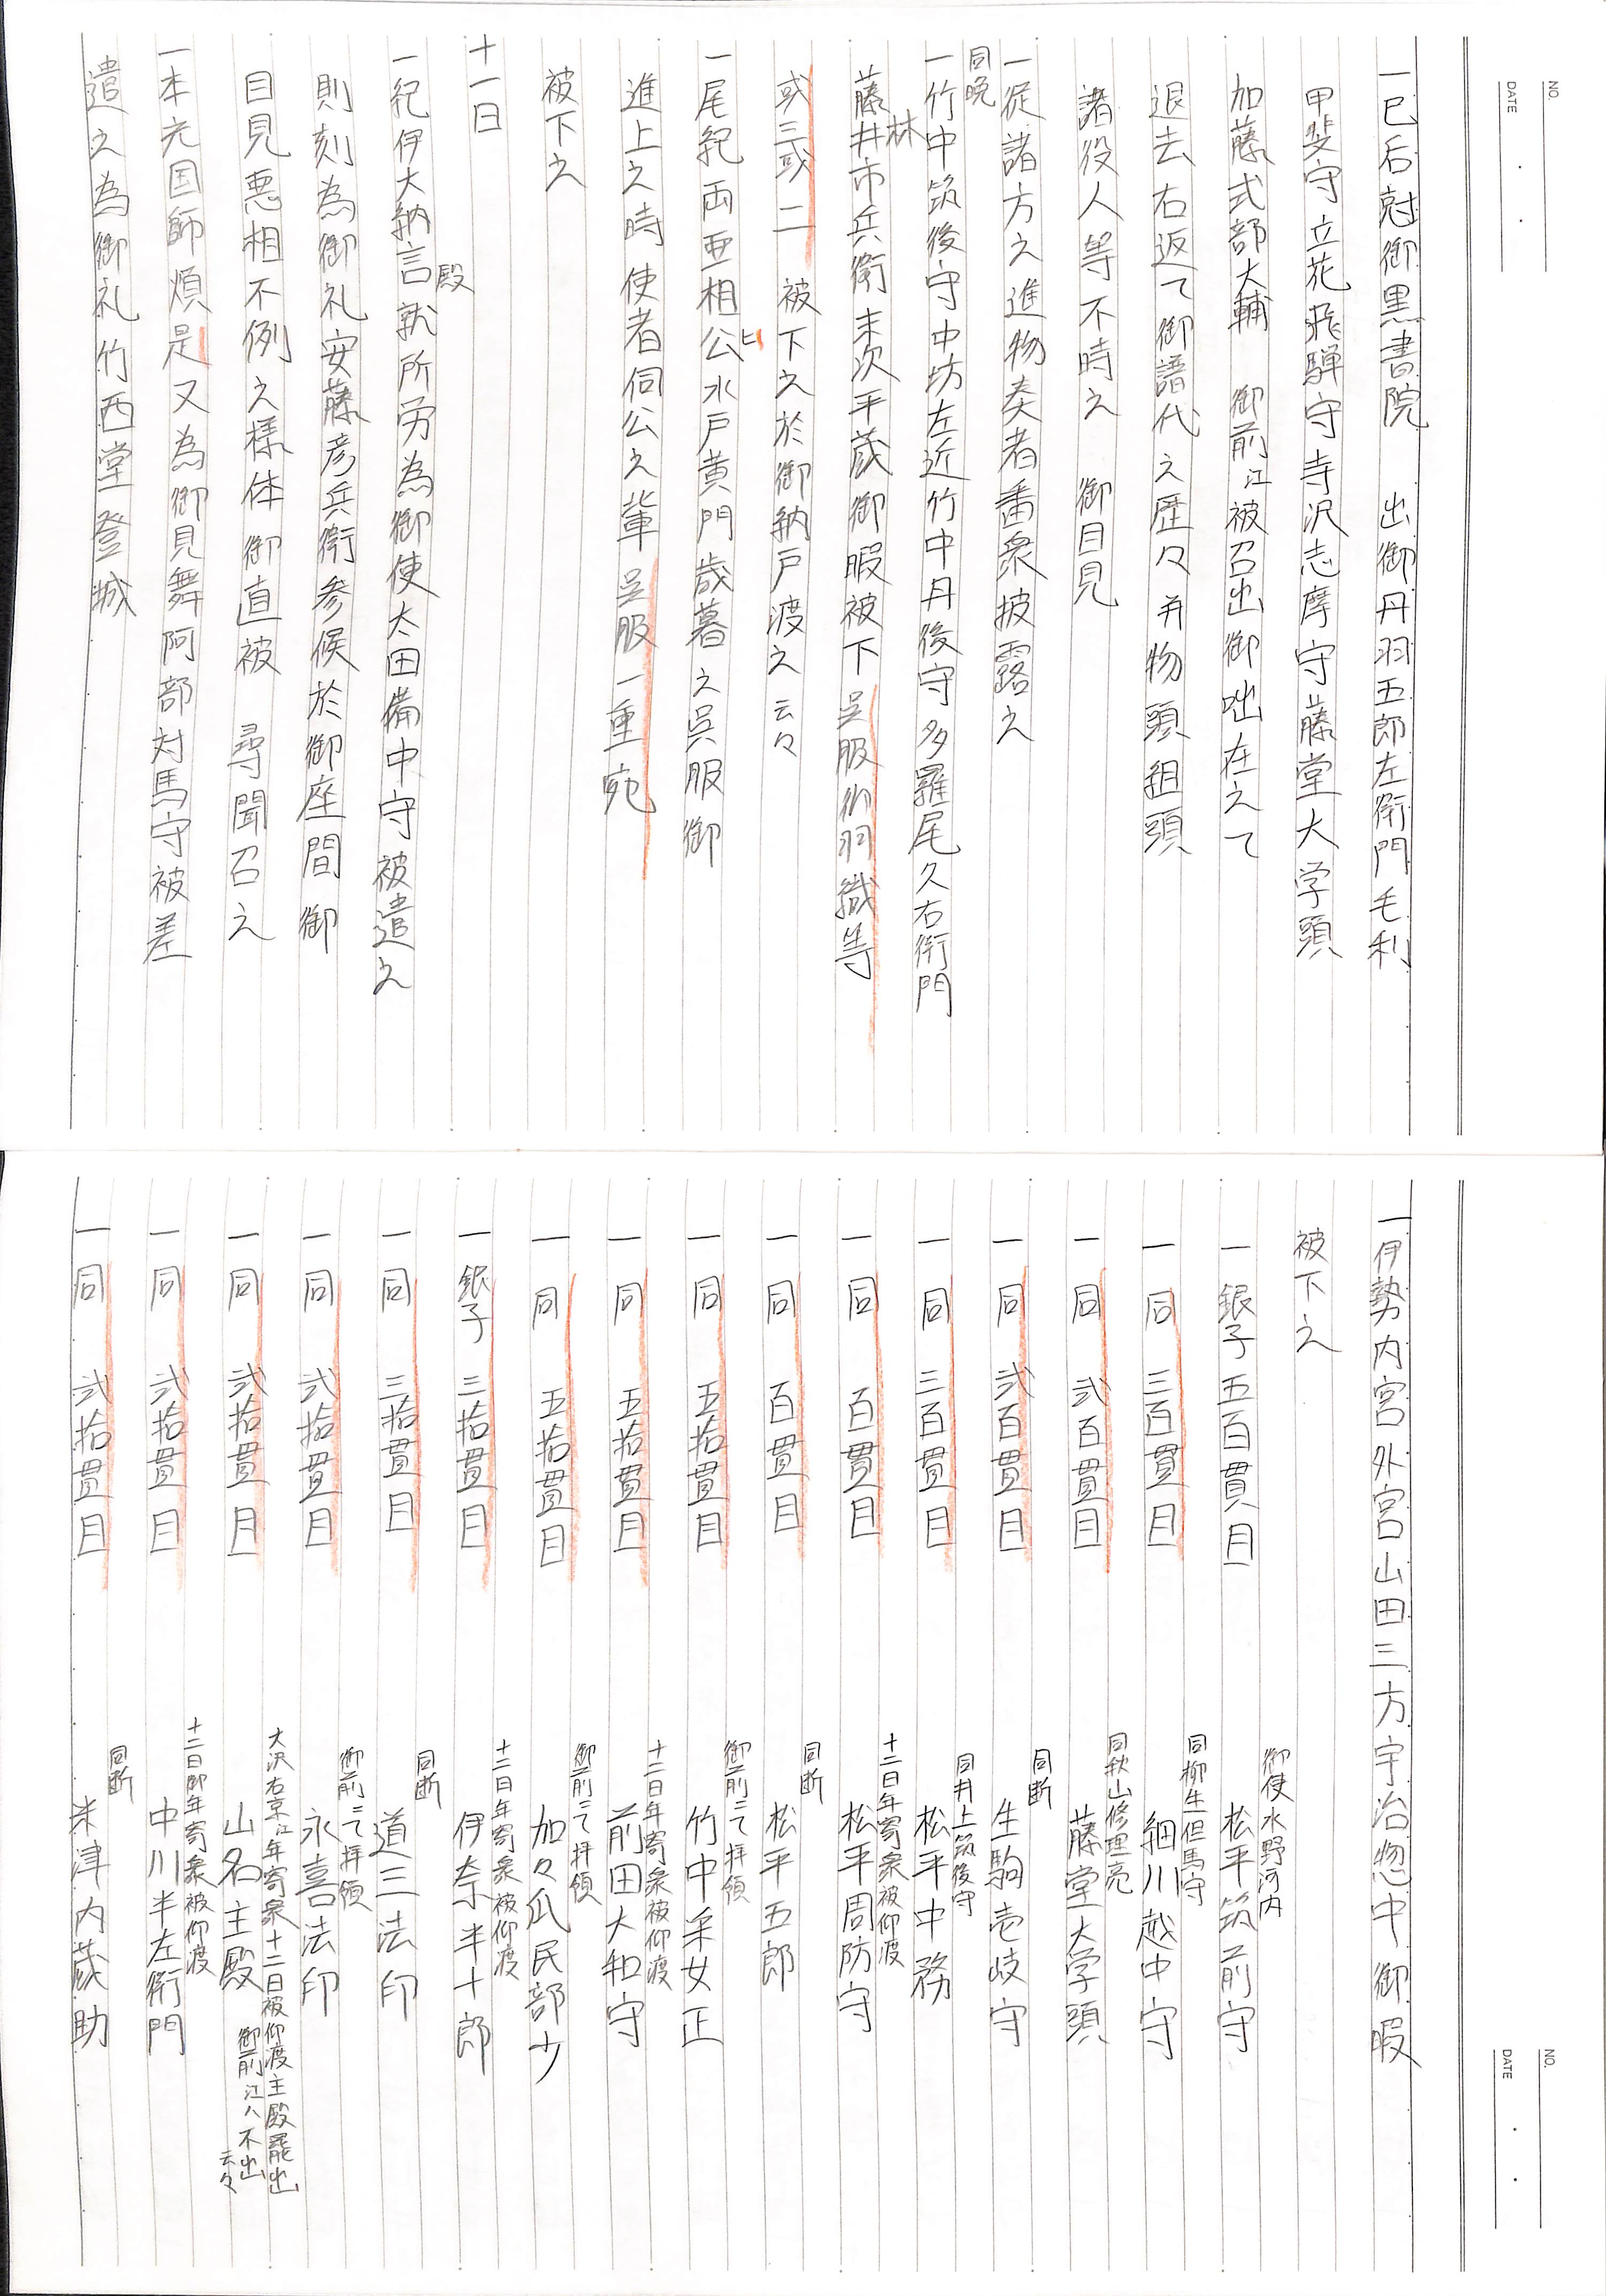 NO.
DATE
一巳后尅御黒書院　出御丹羽五郎左衛門毛利
甲斐守立花飛騨守寺沢志摩守藤堂大学頭
加藤式部大輔　御前江被召出御咄在之て
退去右返て御譜代之歴々并物頭組頭
諸役人等不時之　御目見
一従諸方之進物奏者番衆披露之
同晩
一竹中筑後守中坊左近竹中丹後守多羅尾久右衛門
林
藤井市兵衛末次平蔵御暇被下呉服羽織等
或三或二　被下之於御納戸渡之云々
一尾紀両亜相公水戸黄門歳暮之呉服御
進上之時使者伺公之輩呉服一重宛
被下之
十一日
一紀伊大納言殿就所労為御使太田備中守被遣之
則刻為御礼安藤彦兵衛参候於御座間御
目見悪相不例之様体御直被　尋聞召之
一本光国師煩是又為御見舞阿部対馬守被差
遣之為御礼竹西堂登城
NO.
DATE
一伊勢内宮外宮山田三方宇治惣中御暇
被下之
一　銀子五百貫目　御使水野河内　松平筑前守
一　同　三百貫目　同柳生但馬守　細川越中守
一　同　弐百貫目　同秋山修理亮　藤堂大学頭
一　同　弐百貫目　同断　生駒壱岐守
一　同　三百貫目　同井上筑後守　松平中務
一　同　百貫目　十二日年寄衆被仰渡　松平周防守
一　同　百貫目　同断　松平五郎
一　同　五拾貫目　御前ニて拝領　竹中采女正
一　同　五拾貫目　十二日年寄衆被仰渡　前田大和守
一　同　五拾貫目　御前ニて拝領　加々爪民部少
一　銀子　三拾貫目　十二日年寄衆被仰渡　伊奈半十郎
一　同　三拾貫目　同断　道三法印
一　同　弐拾貫目　御前ニて拝領　永喜法印
一　同　弐拾貫目　大沢右京江年寄衆十二日被仰渡主殿罷出　御前江ハ不出　云々　山名主殿
一　同　弐拾貫目　十二日御年寄衆被仰渡　中川半左衛門
一　同　弐拾貫目　同断　米津内蔵助